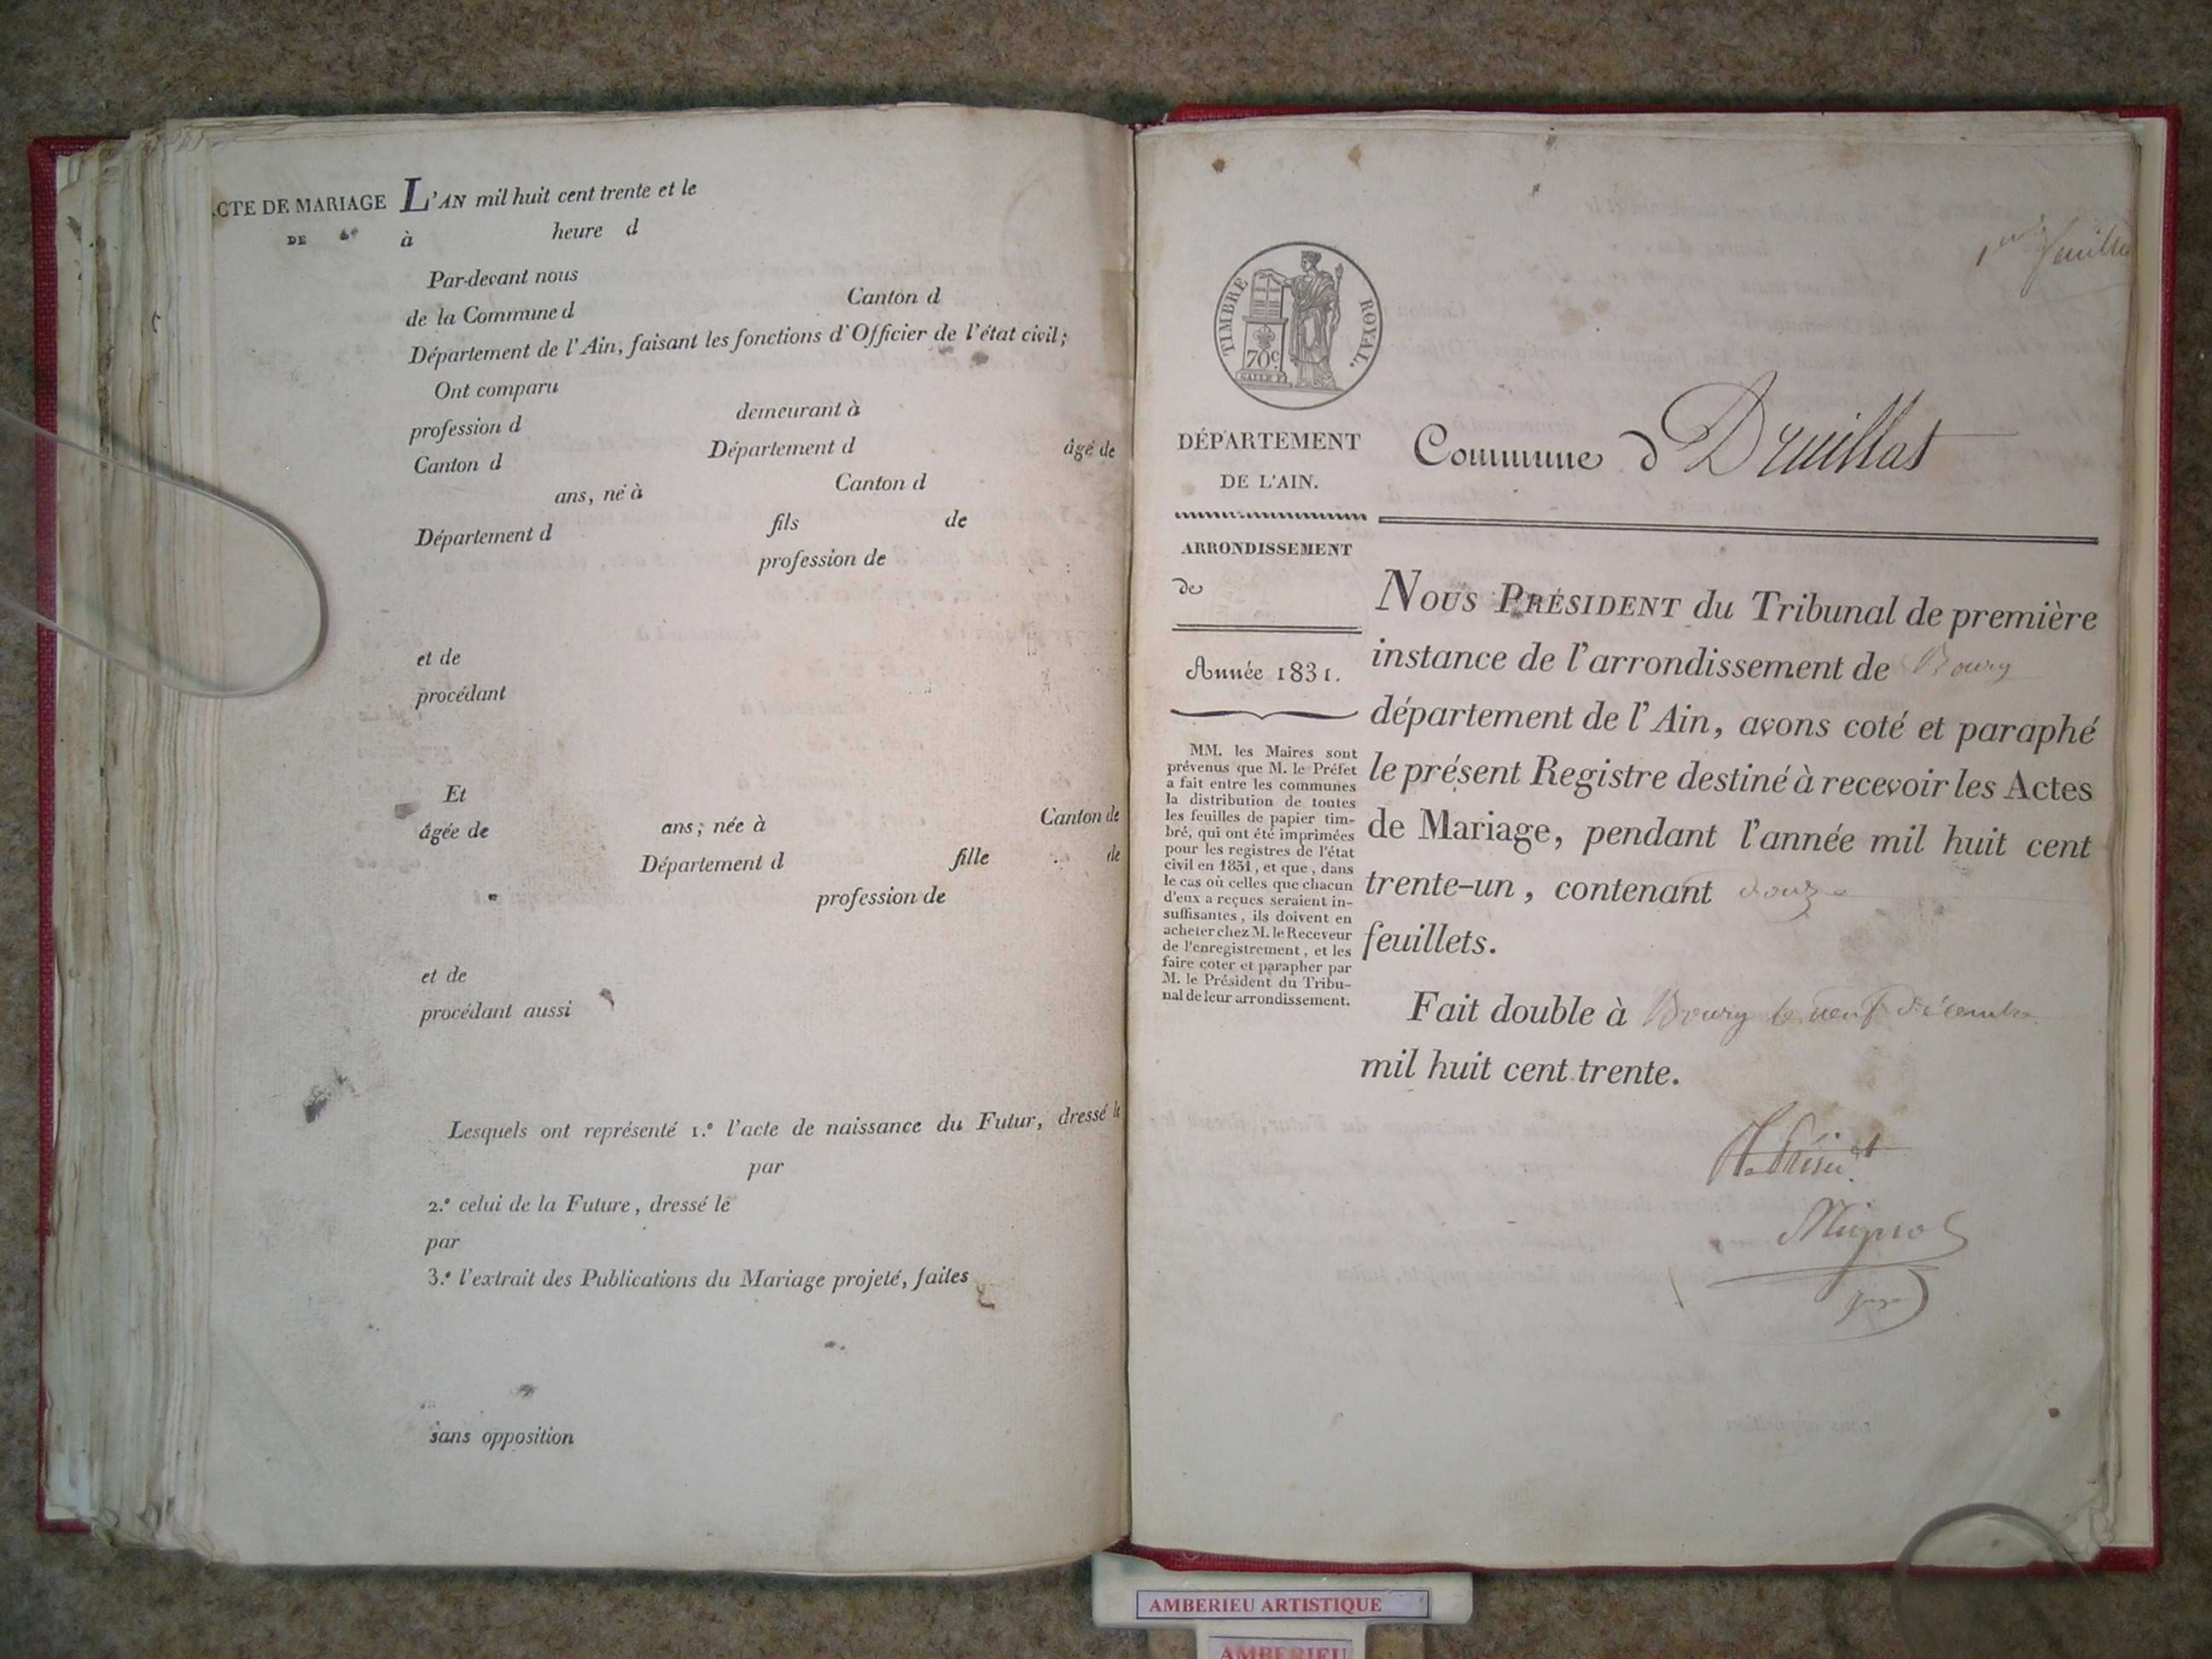 ACTE DE MARIAGE L'AN mil huit cent trente et le
DE à heure d
Par-devant nous
de la Commune d Canton d
Département de l'Ain, faisant les fonctions d'Officier de l'état civil;
Ont comparu
profession d demeurant à
Canton d Département d âgé de
ans, né à Canton d
Département d fils de
profession de
et de
procédant
Et
âgée de ans; née à Canton de
Département d fille de
profession de
et de
procédant aussi
Lesquels ont représenté 1.º l'acte de naissance du Futur, dressé le
par
2.º celui de la Future, dressé le
par
3.º l'extrait des Publications du Mariage projeté, faites
sans opposition
TIMBRE ROYAL.
70c
1er feuillet
DÉPARTEMENT
DE L'AIN.
Commune d Druillat
ARRONDISSEMENT
de
Année 1831.
MM. les Maires sont
prévenus que M. le Préfet
a fait entre les communes
la distribution de toutes
les feuilles de papier tim-
bré, qui ont été imprimées
pour les registres de l'état
civil en 1831, et que, dans
le cas où celles que chacun
d'eux a reçues seraient in-
suffisantes, ils doivent en
acheter chez M. le Receveur
de l'enregistrement, et les
faire coter et parapher par
M. le Président du Tribu-
nal de leur arrondissement.
NOUS PRÉSIDENT du Tribunal de première
instance de l'arrondissement de Bourg
département de l'Ain, avons coté et paraphé
le présent Registre destiné à recevoir les Actes
de Mariage, pendant l'année mil huit cent
trente-un, contenant douze
feuillets.
Fait double à Bourg le neuf décembre
mil huit cent trente.
AMBERIEU ARTISTIQUE
AMBERIEU